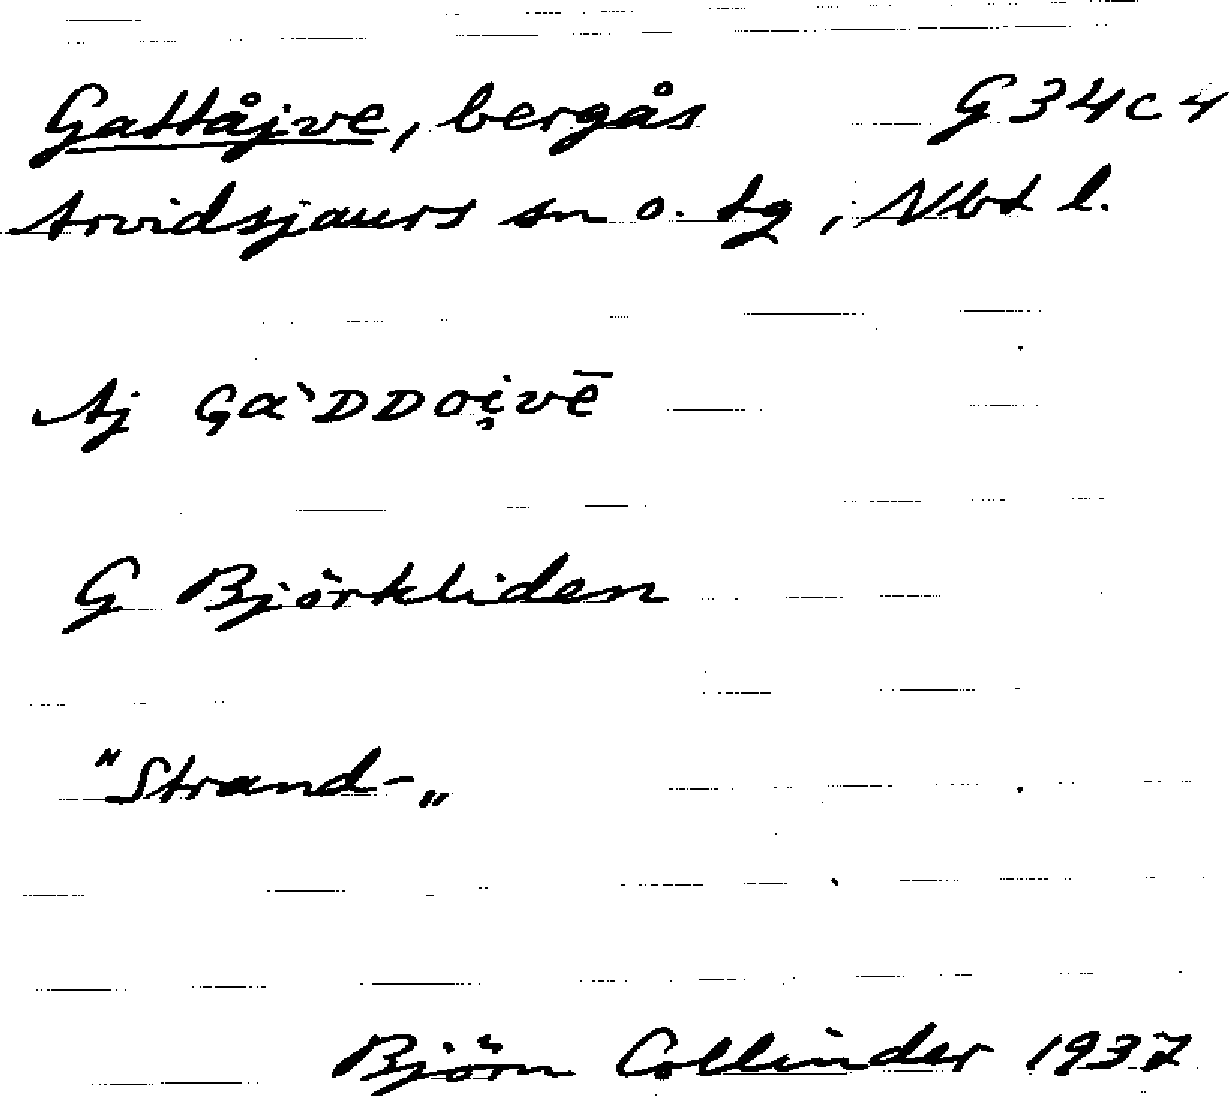 Gattåjve, bergås G34c4
Arvidsjaurs sn o. tg, Nbt l.
Aj Gɑ̀DDOi̯vē
G Björkliden
"Strand-„
Björn Collinder 1937